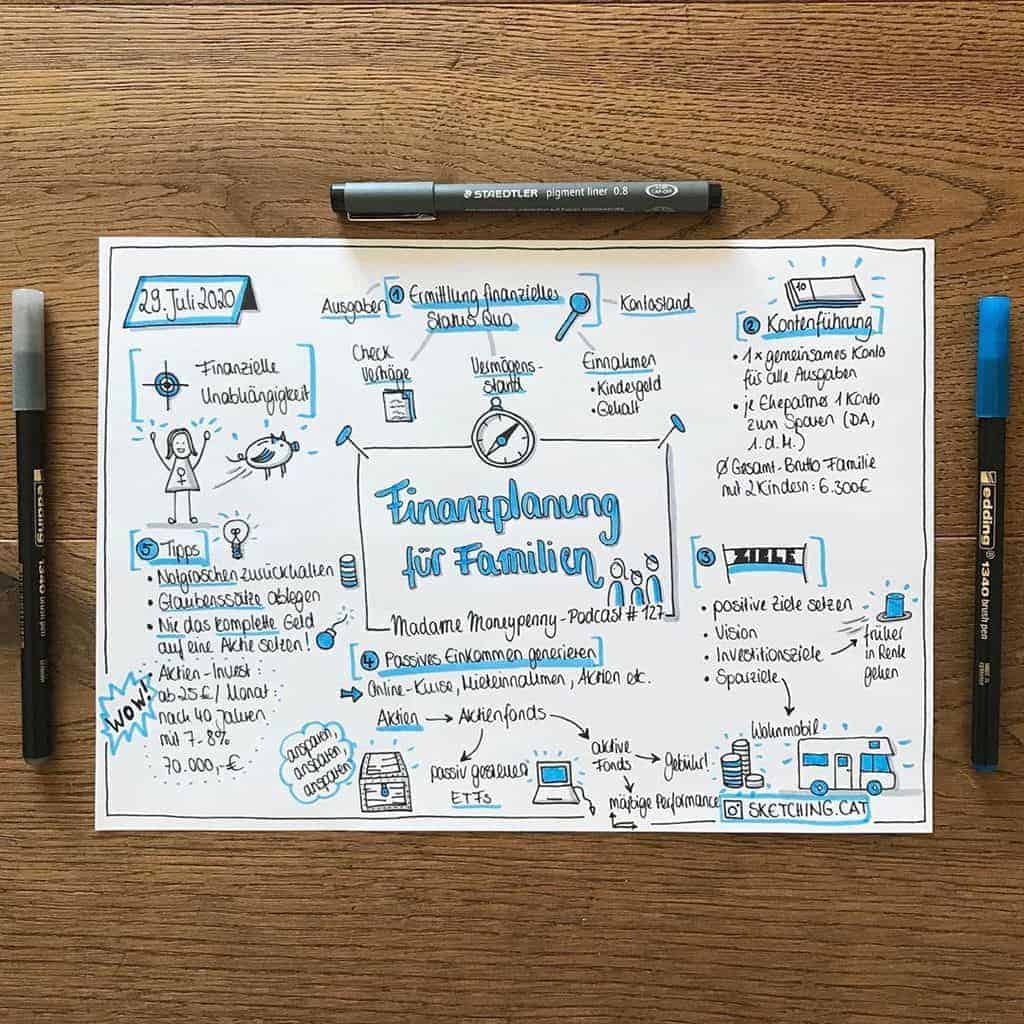 STAEDTLER pigment liner 0.8
29. Juli 2020
Finanzielle
Unabhängigkeit
Ausgaben
1 Ermittlung finanzielles
Status Quo
Kontostand
Check
Verträge
Vermögens-
stand
Einnahmen
• Kindergeld
• Gehalt
10
2 Kontenführung
• 1x gemeinsames Konto
für alle Ausgaben
• je Ehepartner 1 Konto
zum Sparen (DA,
1. d. M.)
Ø Gesamt-Brutto Familie
mit 2 Kindern: 6.300€
Finanzplanung
für Familien
Madame Moneypenny-Podcast #127
3 ZIELE
• positive Ziele setzen
• Vision
• Investitionsziele
• Sparziele
früher
in Rente
gehen
Wohnmobil
4 Passives Einkommen generieren
Online-Kurse, Mieteinnahmen, Aktien etc.
Aktien
Aktienfonds
passiv gesteuert
ETFs
aktive
Fonds
Gebühr!
mäßige Performance
ansparen,
ansparen,
ansparen
5 Tipps
• Notgroschen zurückhalten
• Glaubenssätze ablegen
• Nie das komplette Geld
auf eine Aktie setzen!
Aktien-Invest:
ab 25€/Monat
nach 40 Jahren
mit 7-8%
70.000,-€
WOW!
SKETCHING.CAT
edding 1340 brush pen
edding 1340 brush pen